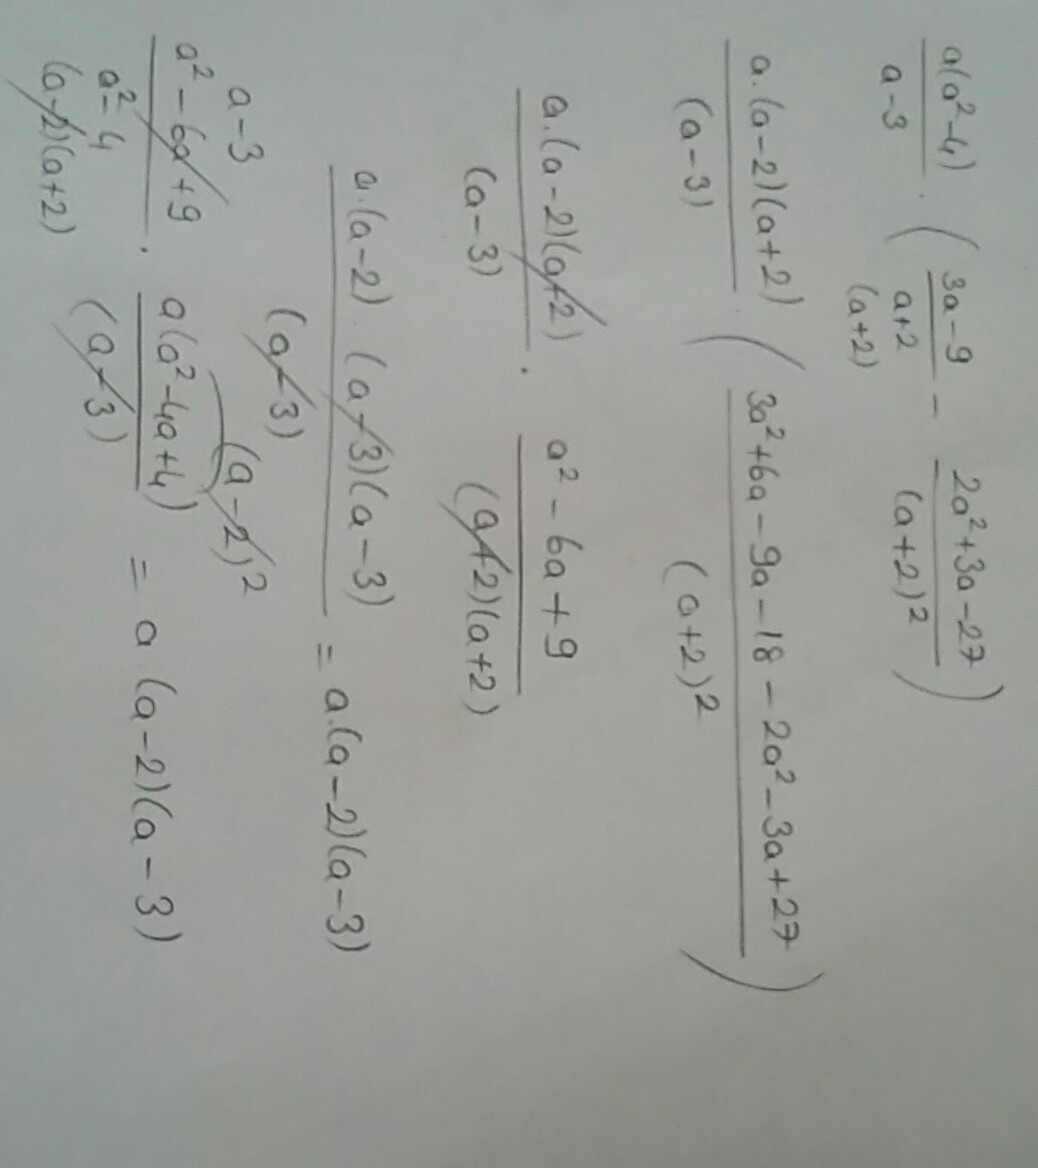 a(a²-4) / a-3 · ( 3a-9 / a+2 - 2a²+3a-27 / (a+2)² )
(a+2)
a.(a-2)(a+2) / (a-3) · ( 3a²+6a-9a-18-2a²-3a+27 / (a+2)² )
a.(a-2)(a+2) / (a-3) · a²-6a+9 / (a+2)(a+2)
a.(a-2).(a-3)(a-3) / (a-3) = a.(a-2)(a-3)
a-3 (a-2)²
a²-6a+9 / a²-4 · a(a²-4a+4) / (a-3) = a.(a-2)(a-3)
(a-2)(a+2)